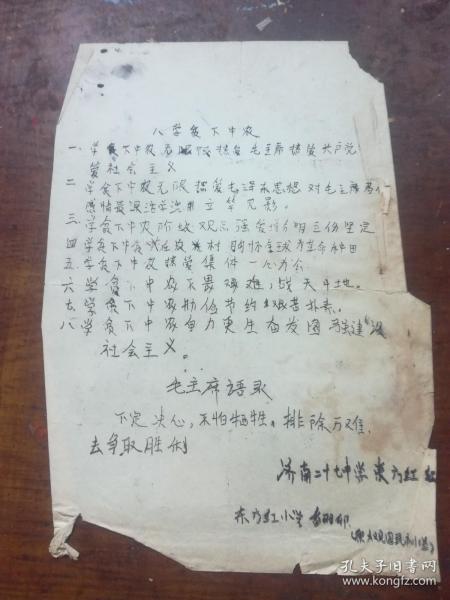 八学贫下中农
一、学贫下中农无限热爱毛主席热爱共产党
热爱社会主义
二 学贫下中农无限热爱毛泽东思想 对毛主席著作
感情最深活学活用立竿见影。
三 学贫下中农阶级观点强爱憎分明立场坚定
四 学贫下中农 农村 胸怀全球为革命种田
五、学贫下中农热爱集体一心为公
六 学贫下中农不畏艰难，战天斗地。
七 学贫下中农勤俭节约艰苦朴素。
八学贫下中农自力更生奋发图强建设
社会主义。
毛主席语录
下定决心，不怕牺牲，排除万难，
去争取胜利
济南二十七中学东方红
东方红小学
孔夫子旧书网
www.kongfz.com